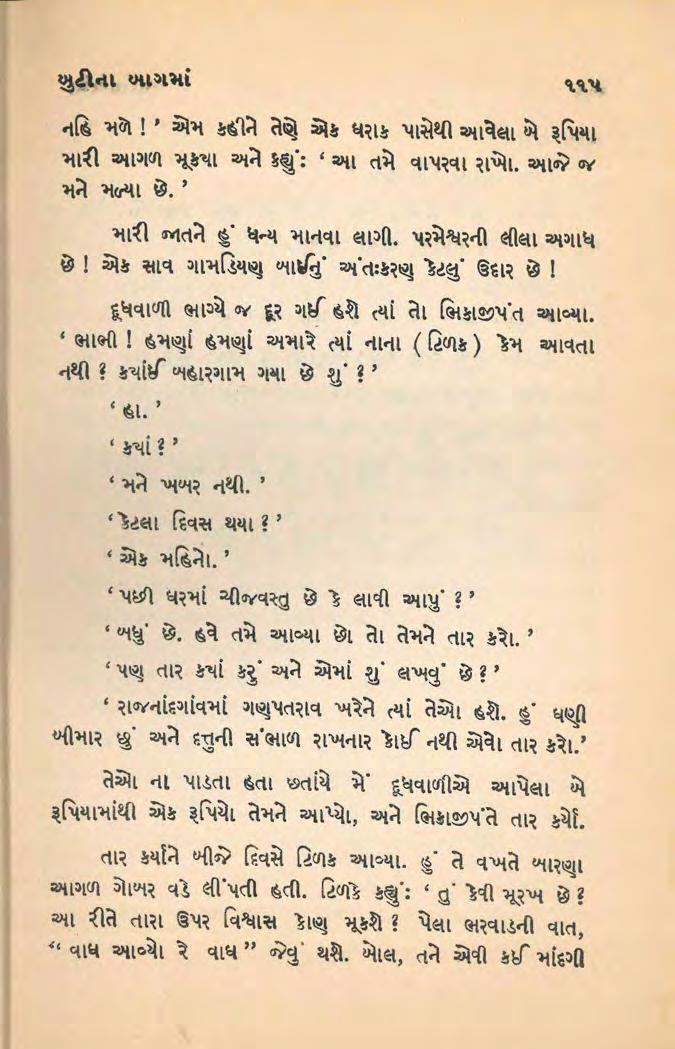 બુટીના બાગમાં ૧૧૫
નહિ મળે ! ’ એમ કહીને તેણે એક ઘરાક પાસેથી આવેલા બે રૂપિયા
મારી આગળ મૂક્યા અને કહ્યું: ‘ આ તમે વાપરવા રાખો. આજે જ
મને મળ્યા છે. ’
મારી જાતને હું ધન્ય માનવા લાગી. પરમેશ્વરની લીલા અગાધ
છે ! એક સાવ ગામડિયણ બાઈનું અંતઃકરણ કેટલું ઉદાર છે !
દૂધવાળી ભાગ્યે જ દૂર ગઈ હશે ત્યાં તો ભિકાજીપંત આવ્યા.
‘ ભાભી ! હમણાં હમણાં અમારે ત્યાં નાના ( ટિળક ) કેમ આવતા
નથી ? ક્યાંઈ બહારગામ ગયા છે શું ? ’
‘ હા. ’
‘ ક્યાં ? ’
‘ મને ખબર નથી. ’
‘ કેટલા દિવસ થયા ? ’
‘ એક મહિનો. ’
‘ પછી ઘરમાં ચીજવસ્તુ છે કે લાવી આપું ? ’
‘ બધું છે. હવે તમે આવ્યા છો તો તેમને તાર કરો. ’
‘ પણ તાર ક્યાં કરું અને એમાં શું લખવું છે ? ’
‘ રાજનાંદગાંવમાં ગણપતરાવ ખરેને ત્યાં તેઓ હશે. હું ઘણી
બીમાર છું અને દત્તુની સંભાળ રાખનાર કોઈ નથી એવો તાર કરો.’
તેઓ ના પાડતા હતા છતાંયે મેં દૂધવાળીએ આપેલા બે
રૂપિયામાંથી એક રૂપિયો તેમને આપ્યો, અને ભિકાજીપંતે તાર કર્યો.
તાર કર્યાને બીજે દિવસે ટિળક આવ્યા. હું તે વખતે બારણા
આગળ ગોબર વડે લીંપતી હતી. ટિળકે કહ્યું: ‘ તું કેવી મૂરખ છે ?
આ રીતે તારા ઉપર વિશ્વાસ કોણ મૂકશે ? પેલા ભરવાડની વાત,
“ વાઘ આવ્યો રે વાઘ ” જેવું થશે. બોલ, તને એવી કઈ માંદગી